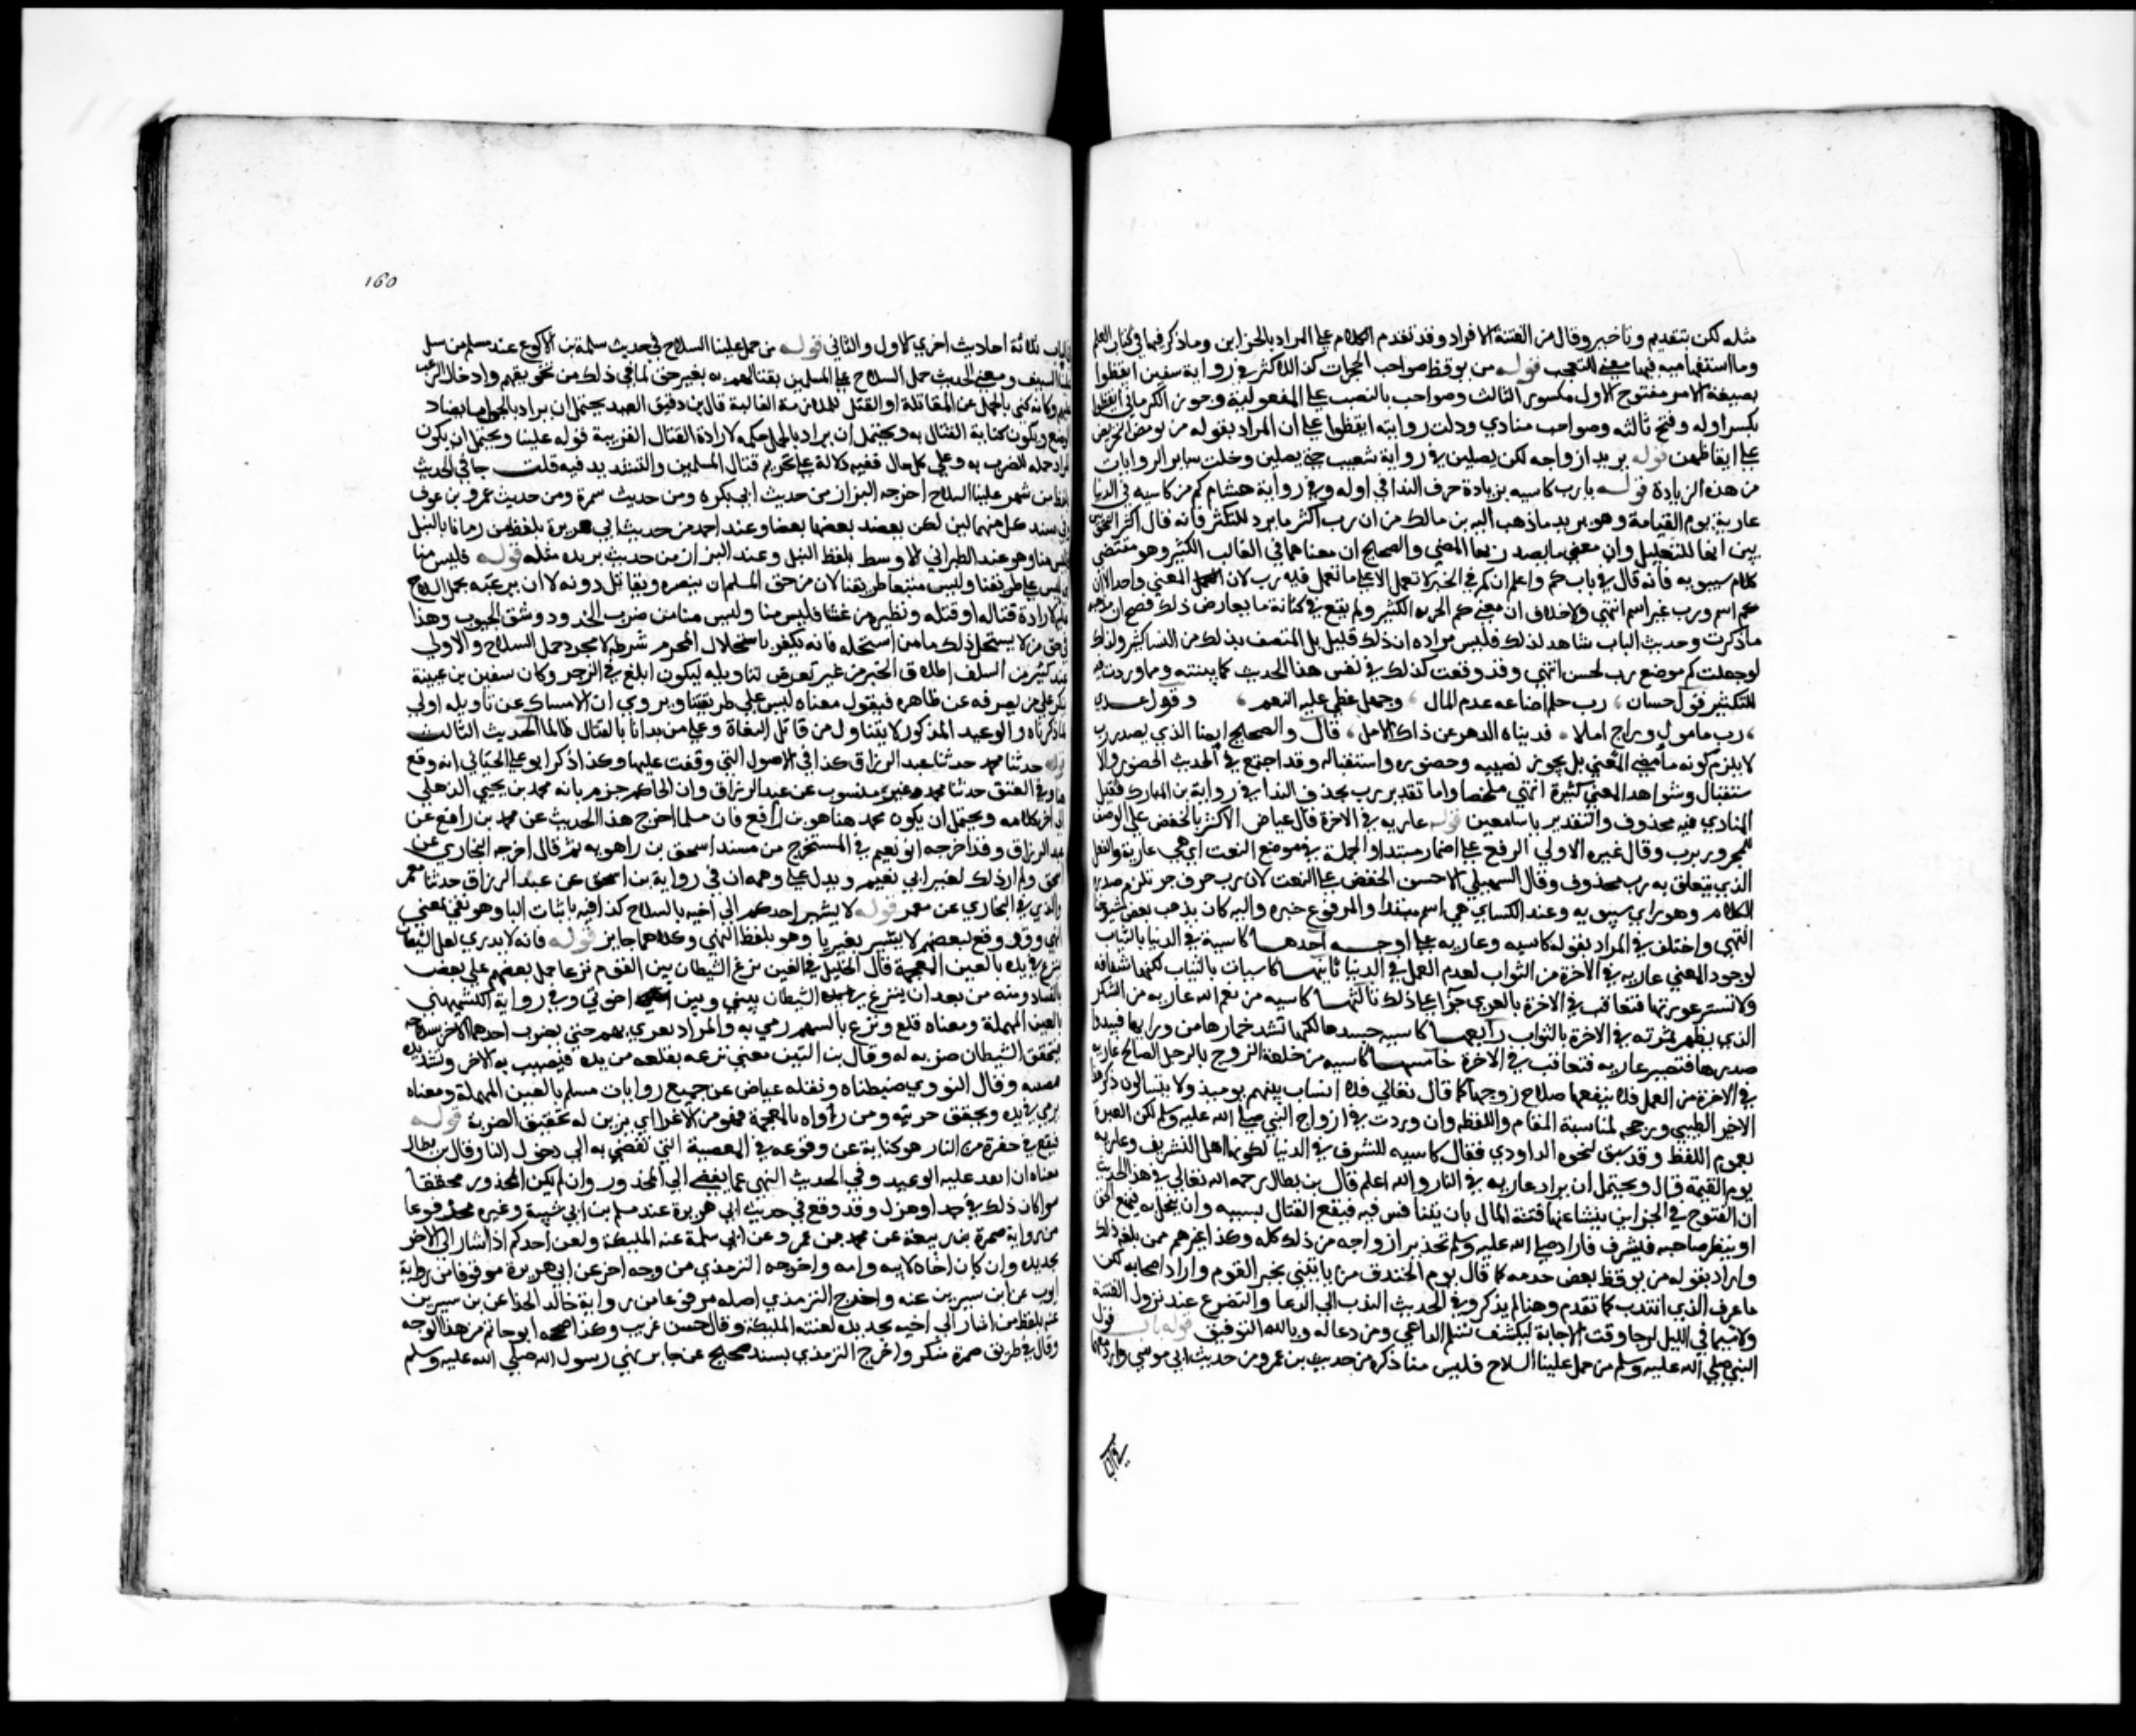 مثله لكن بتقديم وتاخير وقال من الفتنة بالافراد وقد تقدم الكلام علي المراد بالخزاين وما ذكر فيها في كتاب العلم
وما استفهامية فيها معني التعجب قوله من يوقظ صواحب الحجرات كذا للاكثر في رواية سفين ايقظوا
بصيغة الامر مفتوح الاول مكسور الثالث وصواحب بالنصب علي المفعولية وجوز الكرماني ايقظوا
بكسر اوله وفتح ثالثه وصواحب منادي ودلت رواية ايقظوا علي ان المراد بقوله من يوقظ التحريض
علي ايقاظهن قوله يريد ازواجه لكن يصلين في رواية شعيب حتي يصلين وخلت ساير الروايات
من هذه الزيادة قوله يا رب كاسيه بزيادة حرف الندا في اوله وفي رواية هشام كم من كاسيه في الدنيا
عارية يوم القيامة وهو يريد ما ذهب اليه بن مالك من ان رب اكثر ما يرد للتكثير فانه قال اكثر النحويين
يرين انها للتقليل وان معني ما يصدر بها المضي والصحيح ان معناها في الغالب الكثير وهو مقتضي
كلام سيبويه فانه قال في باب كم واعلم ان كم في الخبر لا تعمل الا علي ما تعمل فيه رب لان المعني واحد الا ان
كم اسم ورب غير اسم انتهي ولا خلاف ان معني كم الخبرية الكثير ولم يقع في كتابه ما يعارض ذلك فصح ان مذهبه
ما ذكرت وحديث الباب شاهد لذلك فليس مراده ان ذلك قليل بل المتصف بذلك من النسا كثير ولذلك
لو جعلت كم موضع رب لحسن انتهي وقد وقعت كذلك في نفس هذا الحديث كما بينته وما وردت فيه
للتكثير قول حسان ، رب حلم اضاعه عدم المال ، وجهل غطي عليه النعيم ، وقول عدي
، رب مامول وراج املا ، قد ثناه الدهر عن ذاك الامل ، قال والصحيح ايضا الذي يصدر برب
لا يلزم كونه ماضي المعني بل يجوز مضيه وحضوره واستقباله وقد اجتمع في الحديث الحضور والا
ستقبال وشواهد المعني كثيرة انتهي ملخصا واما تقدير رب بحذف الندا في رواية بن المبارك فقيل
المنادي فيه محذوف والتقدير يا سامعين قوله عاريه في الاخرة قال عياض الاكثر بالخفض علي الوصف
للمجرور برب وقال غيره الاولي الرفع علي اضمار مبتدا والجملة في موضع النعت اي هي عارية والفعل
الذي يتعلق به رب محذوف وقال السهيلي الاحسن الخفض علي النعت لان رب حرف جر تلزم صدر
الكلام وهو راي سيبويه وعند الكساي هي اسم مبتدا والمرفوع خبره واليه كان يذهب بعض شيوخنا
انتهي واختلف في المراد بقوله كاسيه وعاريه علي اوجه احدها كاسية في الدنيا بالثياب
لوجود المعني عاريه في الاخرة من الثواب لعدم العمل في الدنيا ثانيها كاسيات بالثياب لكنها شفافة
ولا تستر عورتها فتعاقب في الاخرة بالعري جزا علي ذلك ثالثها كاسيه من نعم الله عاريه من الشكر
الذي يظهر ثمرته في الاخرة بالثواب رابعها كاسيه جسدها لكنها تشد خمارها من ورايها فيبدوا
صدرها فتصير عاريه فتعاقب في الاخرة خامسها كاسيه من خلعة الزوج بالرجل الصالح عاريه
في الاخرة من العمل فلا ينفعها صلاح زوجها كما قال تعالي فلا انساب بينهم يوميذ ولا يتسالون ذكر هذا
الاخير الطيبي ورجحه لمناسبة المقام واللفظه وان وردت في ازواج النبي صلي الله عليه وسلم لكن العبرة
بعموم اللفظ وقد سبق لنحوه الداودي فقال كاسيه للشرف في الدنيا لكونها اهل التشريف وعاريه
يوم القيمة قال ويحتمل ان يراد عاريه في النار والله اعلم قال بن بطال رحمه الله تعالي في هذا الحديث
ان الفتوح في الخزاين ينشا عنها فتنة المال بان يتنافس فيه فيقع القتال بسببه وان يبخل به فيمنع الحق
او يبطر صاحبه فيسرف فاراد صلي الله عليه وسلم تحذير ازواجه من ذلك كله وكذا غيرهم ممن بلغه ذلك
واراد بقوله من يوقظ بعض خدمه كما قال يوم الخندق من ياتيني بخبر القوم واراد اصحابه لكن
ما عرف الذي انتدب كما تقدم وهنا لم يذكر وفي الحديث الندب الي الدعا والتضرع عند نزول الفتنة
ولا سيما في الليل لرجا وقت الاجابة ليكشف تسلم الداعي ومن دعا له وبالله التوفيق قوله باب قول
النبي صلي الله عليه وسلم من حمل علينا السلاح فليس منا ذكره من حديث بن عمر ومن حديث ابي موسي وارد معها
في الباب ثلاثة احاديث اخري الاول والثاني قوله من حمل علينا السلاح في حديث سلمة بن الاكوع عند مسلم من سل
علينا السيف ومعني الحديث حمل السلاح علي المسلمين بقتالهم به بغير حق لما في ذلك من تخويفهم وادخال الرعب
عليهم وكانه كني بالحمل عن المقاتلة او القتل للملازمة الغالبة قال بن دقيق العيد يحتمل ان يراد بالحمل ما يضاد
الوضع ويكون كناية القتال به ويحتمل ان يراد بالحمل حمله لارادة القتال لقرينة قوله علينا ويحتمل ان يكون
المراد حمله للضرب به وعلي كل حال ففيه دلالة علي تحريم قتال المسلمين والتشديد فيه قلت جا في الحديث
بلفظ من شهر علينا السلاح اخرجه البزار من حديث ابي بكره ومن حديث سمرة ومن حديث عمرو بن عوف
وفي سند كل منهما لين لكن يعضد بعضها بعضا وعند احمد من حديث ابي هريرة بلفظ من رمانا بالنبل
فليس منا وهو عند الطبراني في الاوسط بلفظ الليل وعند البزار من حديث بريده مثله قوله فليس منا
اي ليس علي طريقتنا وليس متبعا طريقتنا لان من حق المسلم ان ينصره ويقاتل دونه لا ان يرعبه بحمل السلاح
عليه لارادة قتاله او قتله ونظيره من غشنا فليس منا وليس منا من ضرب الخدود وشق الجيوب وهذا
في حق من لا يستحل ذلك فاما من استحله فانه يكفر باستحلال المحرم بشرطه لا مجرد حمل السلاح والاولي
عند كثير من السلف اطلاق الخبر من غير تعرض لتاويله ليكون ابلغ في الزجر وكان سفين بن عيينة
ينكر علي من يصرفه عن ظاهره فيقول معناه ليس علي طريقتنا ويروي ان الامساك عن تاويله اولي
لما ذكرناه والوعيد المذكور لا يتناول من قاتل البغاة وعلي من بدانا بالقتال ظالما الحديث الثالث
قوله حدثنا محمد حدثنا عبد الرزاق كذا في الاصول التي وقفت عليها وكذا ذكر ابو علي الجياني انه وقع
هنا وفي العتق حدثنا محمد غير منسوب عن عبد الرزاق وان الحاكم جزم بانه محمد بن يحيي الذهلي
الي اخر كلامه ويحتمل ان يكون محمد هنا هو بن رافع فان مسلما اخرج هذا الحديث عن محمد بن رافع عن
عبد الرزاق وقد اخرجه ابو نعيم في المستخرج من مسند اسحق بن راهويه ثم قال اخرجه البخاري عن
اسحق ولم ار ذلك لغير ابي نعيم ويدل علي وهمه ان في رواية بن اسحق عن عبد الرزاق حدثنا معمر
والذي في البخاري عن معمر قوله لا يشير احدكم الي اخيه بالسلاح كذا فيه باثبات اليا وهو نفي بمعني
النهي ووقع لبعضهم لا يشر بغير يا وهو بلفظ النهي وكلاهما جايز قوله فانه لا يدري لعل الشيطان
ينزغ في يده بالغين المعجمة قال الخليل في العين نزغ الشيطان بين القوم نزغا حمل بعضهم علي بعض
بالفساد ومنه من بعد ان ينزغ الشيطان بيني وبين اخوتي وفي رواية الكشميهني
بالعين المهملة ومعناه قلع ونزع بالسهم رمي به والمراد يغري بهم حتي يضرب احدهما الاخر بسلاحه
فيحقق الشيطان ضربه له وقال بن التين معني نزعه يقلعه من يده فيصيب به الاخر وتشتد يده
فيصيبه وقال النووي ضبطناه ونقله عياض عن جميع روايات مسلم بالعين المهملة ومعناه
يرمي في يده ويحقق ضربته ومن رواه بالمعجمة فهو من الاغرا اي يزين له تحقيق الضربة قوله
فيقع في حفرة من النار هو كناية عن وقوعه في المعصية التي تفضي به الي دخول النار قال بن بطال
معناه ان انفذ عليه الوعيد وفي الحديث النهي عما يفضي الي المحذور وان لم يكن المحذور محققا
سوا كان ذلك في جد او هزل وقد وقع في حديث ابي هريرة عند مسلم بن ابي شيبة وغيره مرفوعا
من رواية ضمرة بن ربيعة عن محمد بن عمرو عن ابي سلمة عنه الملايكة تلعن احدكم اذا اشار الي الاخر
بحديده وان كان اخاه لابيه وامه واخرجه الترمذي من وجه اخر عن ابي هريرة موقوفا من رواية
ايوب عن ابن سيرين عنه واخرج الترمذي اصله مرفوعا من رواية خالد الحذا عن بن سيرين
عنه بلفظ من اشار الي اخيه بحديدة لعنته الملايكة وقال حسن غريب وكذا صححه ابو حاتم من هذا الوجه
وقال في طريق ضمرة منكر واخرج الترمذي بسند صحيح عن جابر نهي رسول الله صلي الله عليه وسلم
160